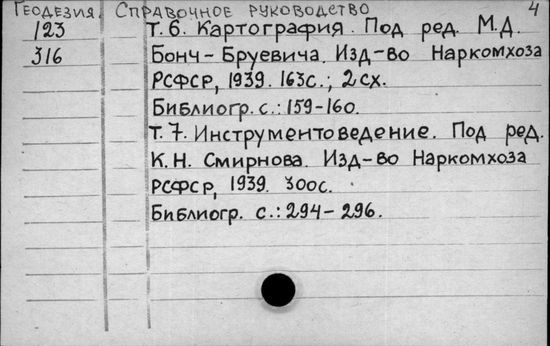 Геодезия. Справочное руководство 4
123 Т. 6. Картография. Под ред. М.Д.
316 Бонч-Бруевича. Изд-во Наркомхоза
РСФСР, 1939. 163с.; 2сх.
Библиогр. с.: 159-160.
Т. 7. Инструментоведение. Под ред.
К.Н. Смирнова. Изд-во Наркомхоза
РСФСР, 1939. 300с.
Библиогр. с.: 294-296.